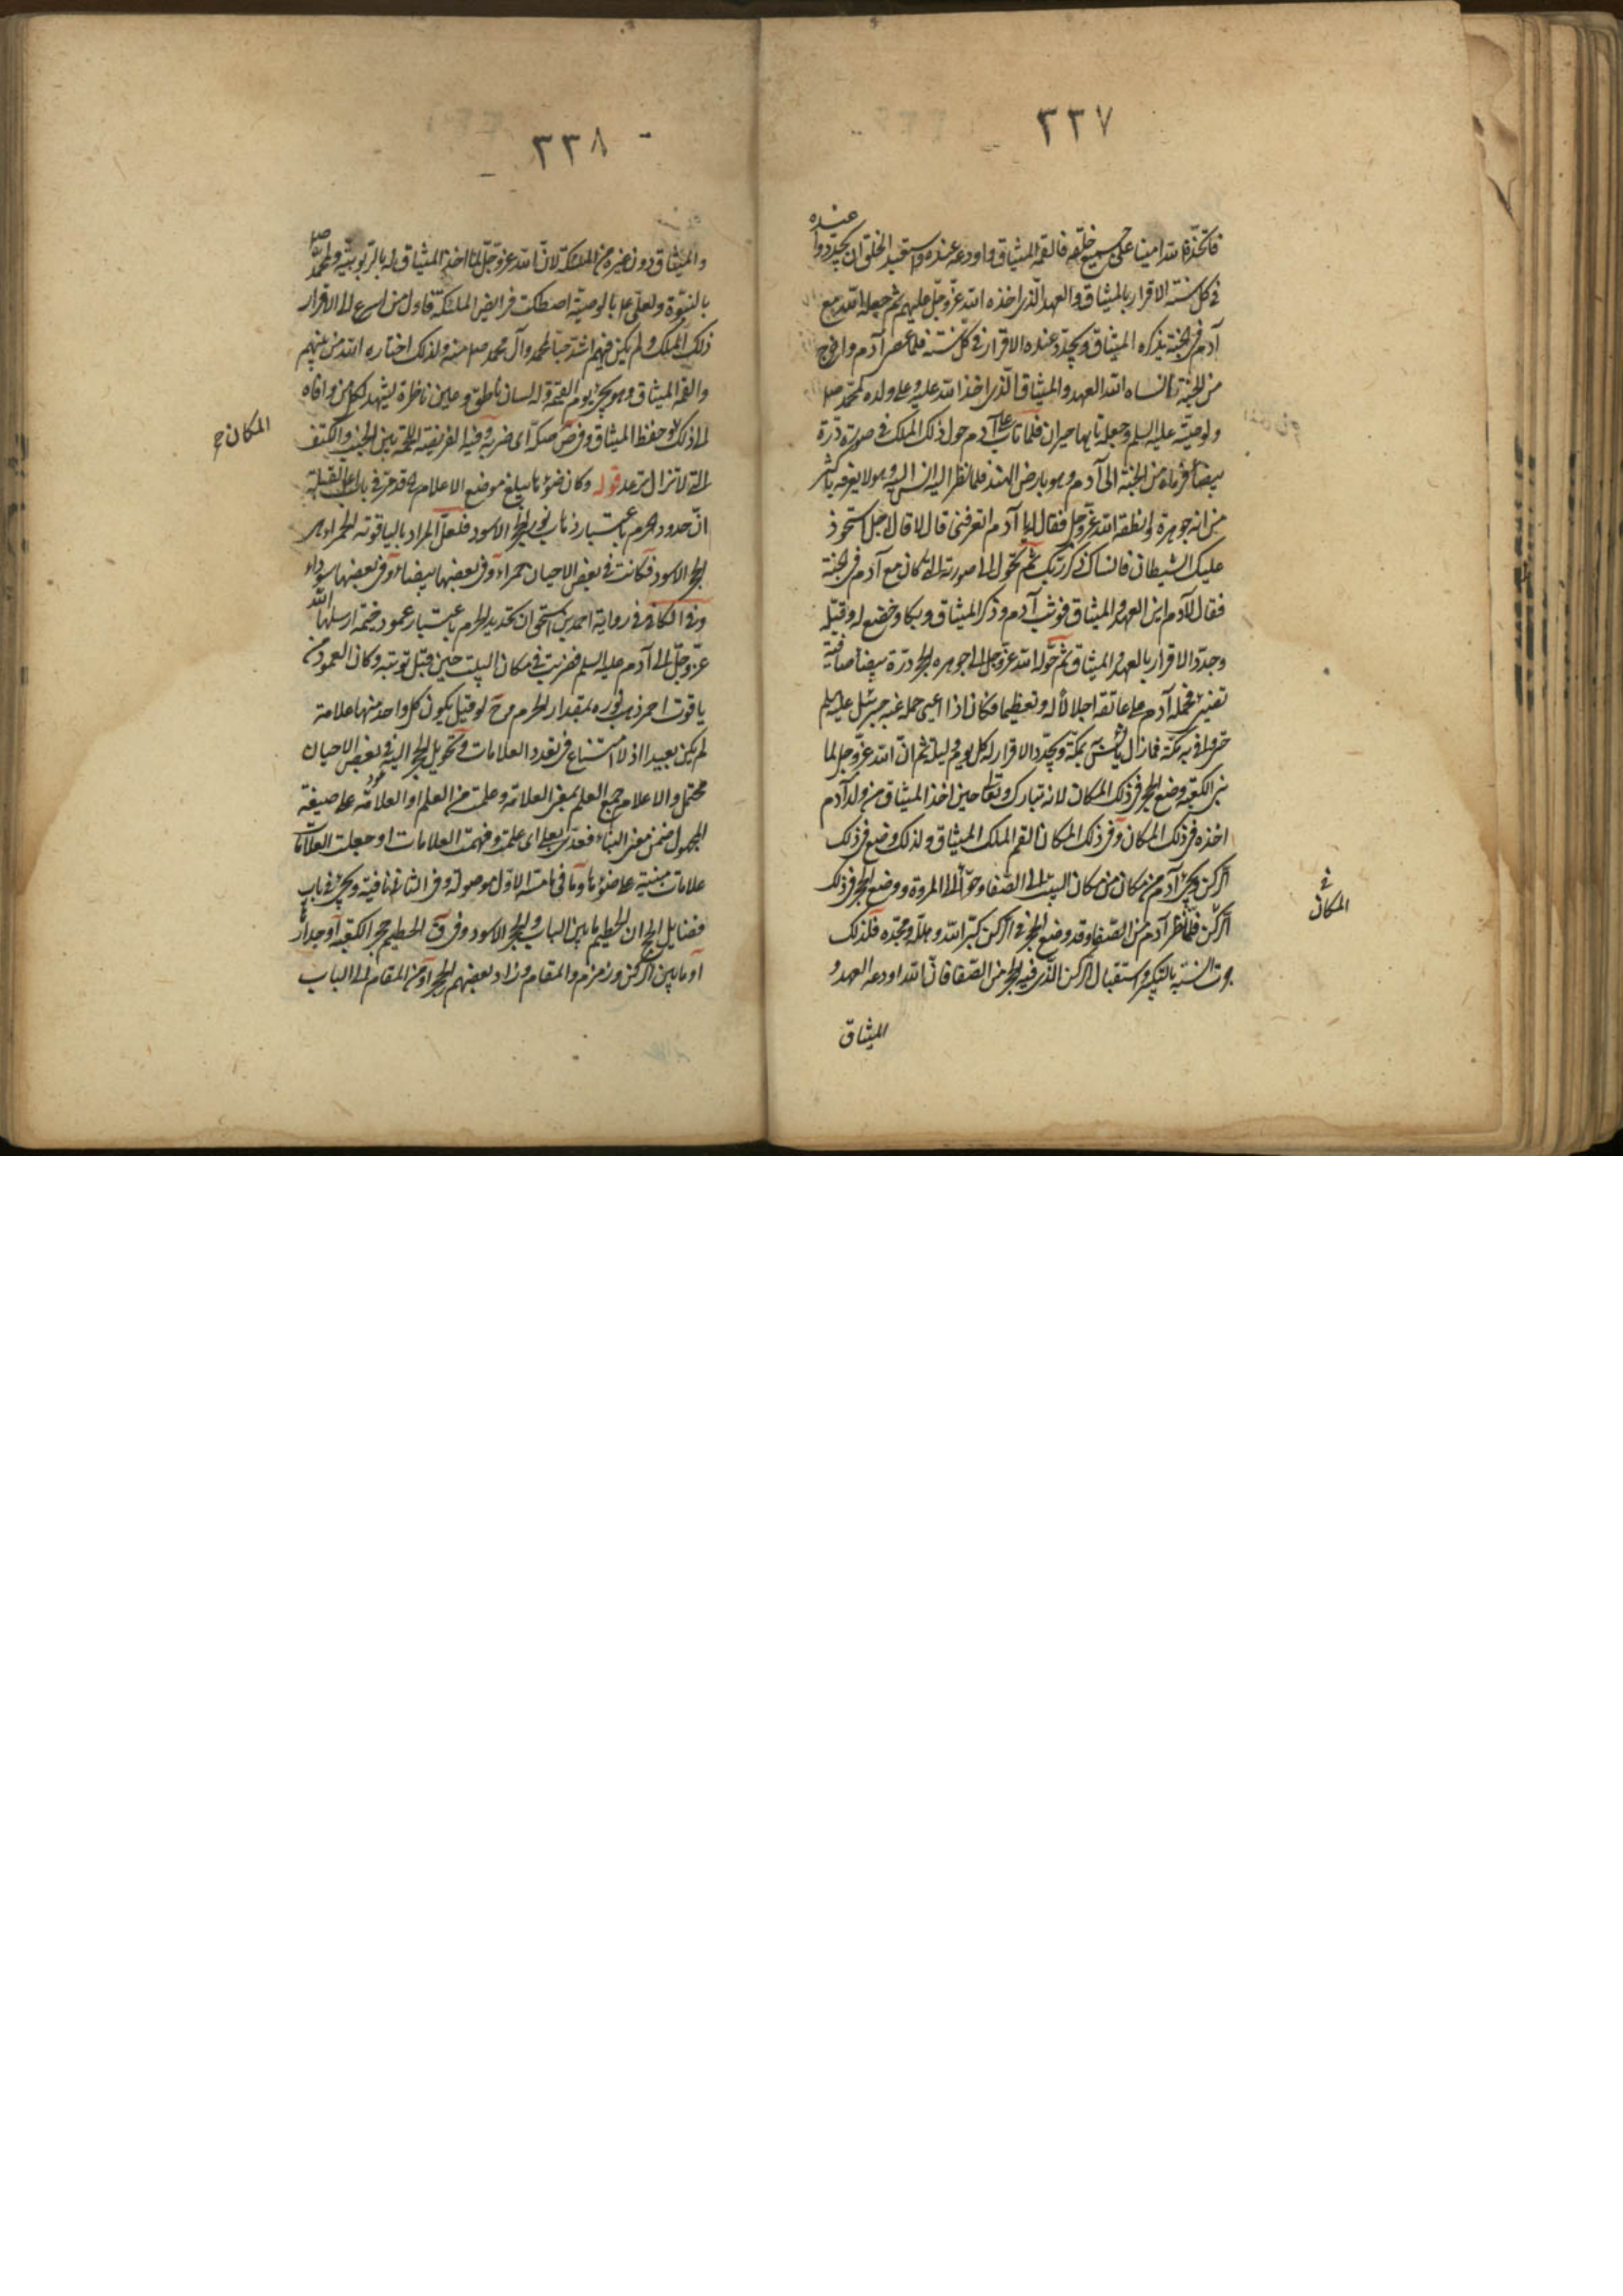 ٣٣٧
فاتخذه الله امينا على جميع خلقه فالقمه الميثاق واودعه عنده واستعبد الخلق ان يجددوا عنده
في كل سنة الاقرار بالميثاق والعهد الذى اخذه الله عز وجل عليهم ثم جعله الله مع
آدم في الجنة يذكره الميثاق ويجدد عنده الاقرار في كل سنة فلما عصى آدم واخرج
من الجنة انساه الله العهد والميثاق الذى اخذ الله عليه وعلى ولده لمحمد صلى
ولوصيه عليه السلم وجعله تايها حيران فلما تاب على آدم حول ذلك الملك في صورة درة
بيضاء فرماه من الجنة الى آدم وهو بارض الهند فلما نظر اليه انس اليه وهو لا يعرفه باكثر
من انه جوهرة وانطقه الله عز وجل فقال له يا آدم اتعرفنى قال لا قال اجل استحوذ
عليك الشيطان فانساك ذكر ربك ثم تحول الى صورته التى كان مع آدم في الجنة
فقال لآدم اين العهد والميثاق فوثب آدم وذكر الميثاق وبكا وخضع له وقبله
وجدد الاقرار بالعهد والميثاق ثم حوله الله عز وجل الى جوهره الحجر درة بيضاء صافية
تضئ فحمله آدم على عاتقه اجلالا له وتعظيما فكان اذا اعيى حمله عنه جبرئيل عليه السلم
حتى وافى به مكة فما زال يأنس به بمكة ويجدد الاقرار له كل يوم وليلة ثم ان الله عز وجل لما
بنى الكعبة وضع الحجر في ذلك المكان لانه تبارك وتعالى حين اخذ الميثاق من ولد آدم
اخذه في ذلك المكان وفي ذلك المكان القم الملك الميثاق ولذلك وضع في ذلك
الركن ونحى آدم من مكان من مكان البيت الى الصفا وحوا الى المروة ووضع الحجر في ذلك
الركن فلما نظر آدم من الصفا وقد وضع الحجر في الركن كبر الله وهلله ومجده فلذلك
جرت السنة بالتكبير واستقبال الركن الذى فيه الحجر من الصفا فان الله اودعه العهد و
الميثاق
في
المكان
٣٣٨
والميثاق دون غيره من الملئكة لان الله عز وجل لما اخذ الميثاق له بالربوبية ولمحمد صلى
بالنبوة ولعلى ع بالوصية اصطكت فرايص الملئكة فاول من اسرع الى الاقرار
ذلك الملك ولم يكن فيهم اشد حبا لمحمد وآل محمد صلى منه ولذلك اختاره الله من بينهم
والقمه الميثاق وهو يجئ يوم القيمة وله لسان ناطق وعين ناظرة ليشهد لكل من وافاه
الى ذلك وحفظ الميثاق وفي ص صكه اى ضربه وفيه الفريصة اللحمة بين الجنب والكتف
التى لا تزال ترعد قوله وكان ضوؤها يبلغ موضع الاعلام قد مر في باب القبلة
ان حدود الحرم باعتبار ذهاب نور الحجر الاسود فلعل المراد بالياقوتة الحمراء هى
الحجر الاسود فكانت في بعض الاحيان حمراء وفي بعضها بيضاء وفي بعضها سوداء
وفي الكافى في رواية احمد بن اسحق ان تحديد الحرم باعتبار عمود خيمة ارسلها الله
عز وجل الى آدم عليه السلم فضربت في مكان البيت حين قبل توبته وكان العمود من
ياقوت احمر ذهب نوره بمقدار الحرم وح لو قيل بكون كل واحد منهما علامة
لم يكن بعيدا اذ لا امتناع في تعدد العلامات وتحويل الحجر اليه في بعض الاحيان
محتمل والاعلام جمع العلم بمعنى العلامة وعلمت من العلم او العلامة على صيغة
المجهول ضمن معنى البناء فعدى بعلى اى علمت وفهمت العلامات او جعلت العلامات
علامات مبنية على ضوؤها وما في هامته الاول موصولة وفي الثانى نافية ويجئ في باب
فضايل الحج ان الحطيم ما بين الباب والحجر الاسود وفي ق الحطيم حجر الكعبة او جداره
او ما بين الركن وزمزم والمقام وزاد بعضهم الحجر او من المقام الى الباب
المكان